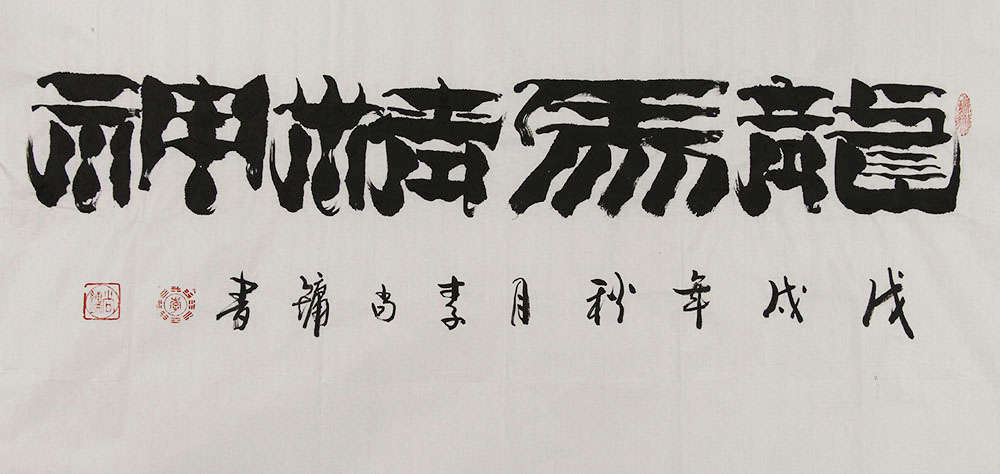 龍馬精神
戊戌年秋月李尚墉書